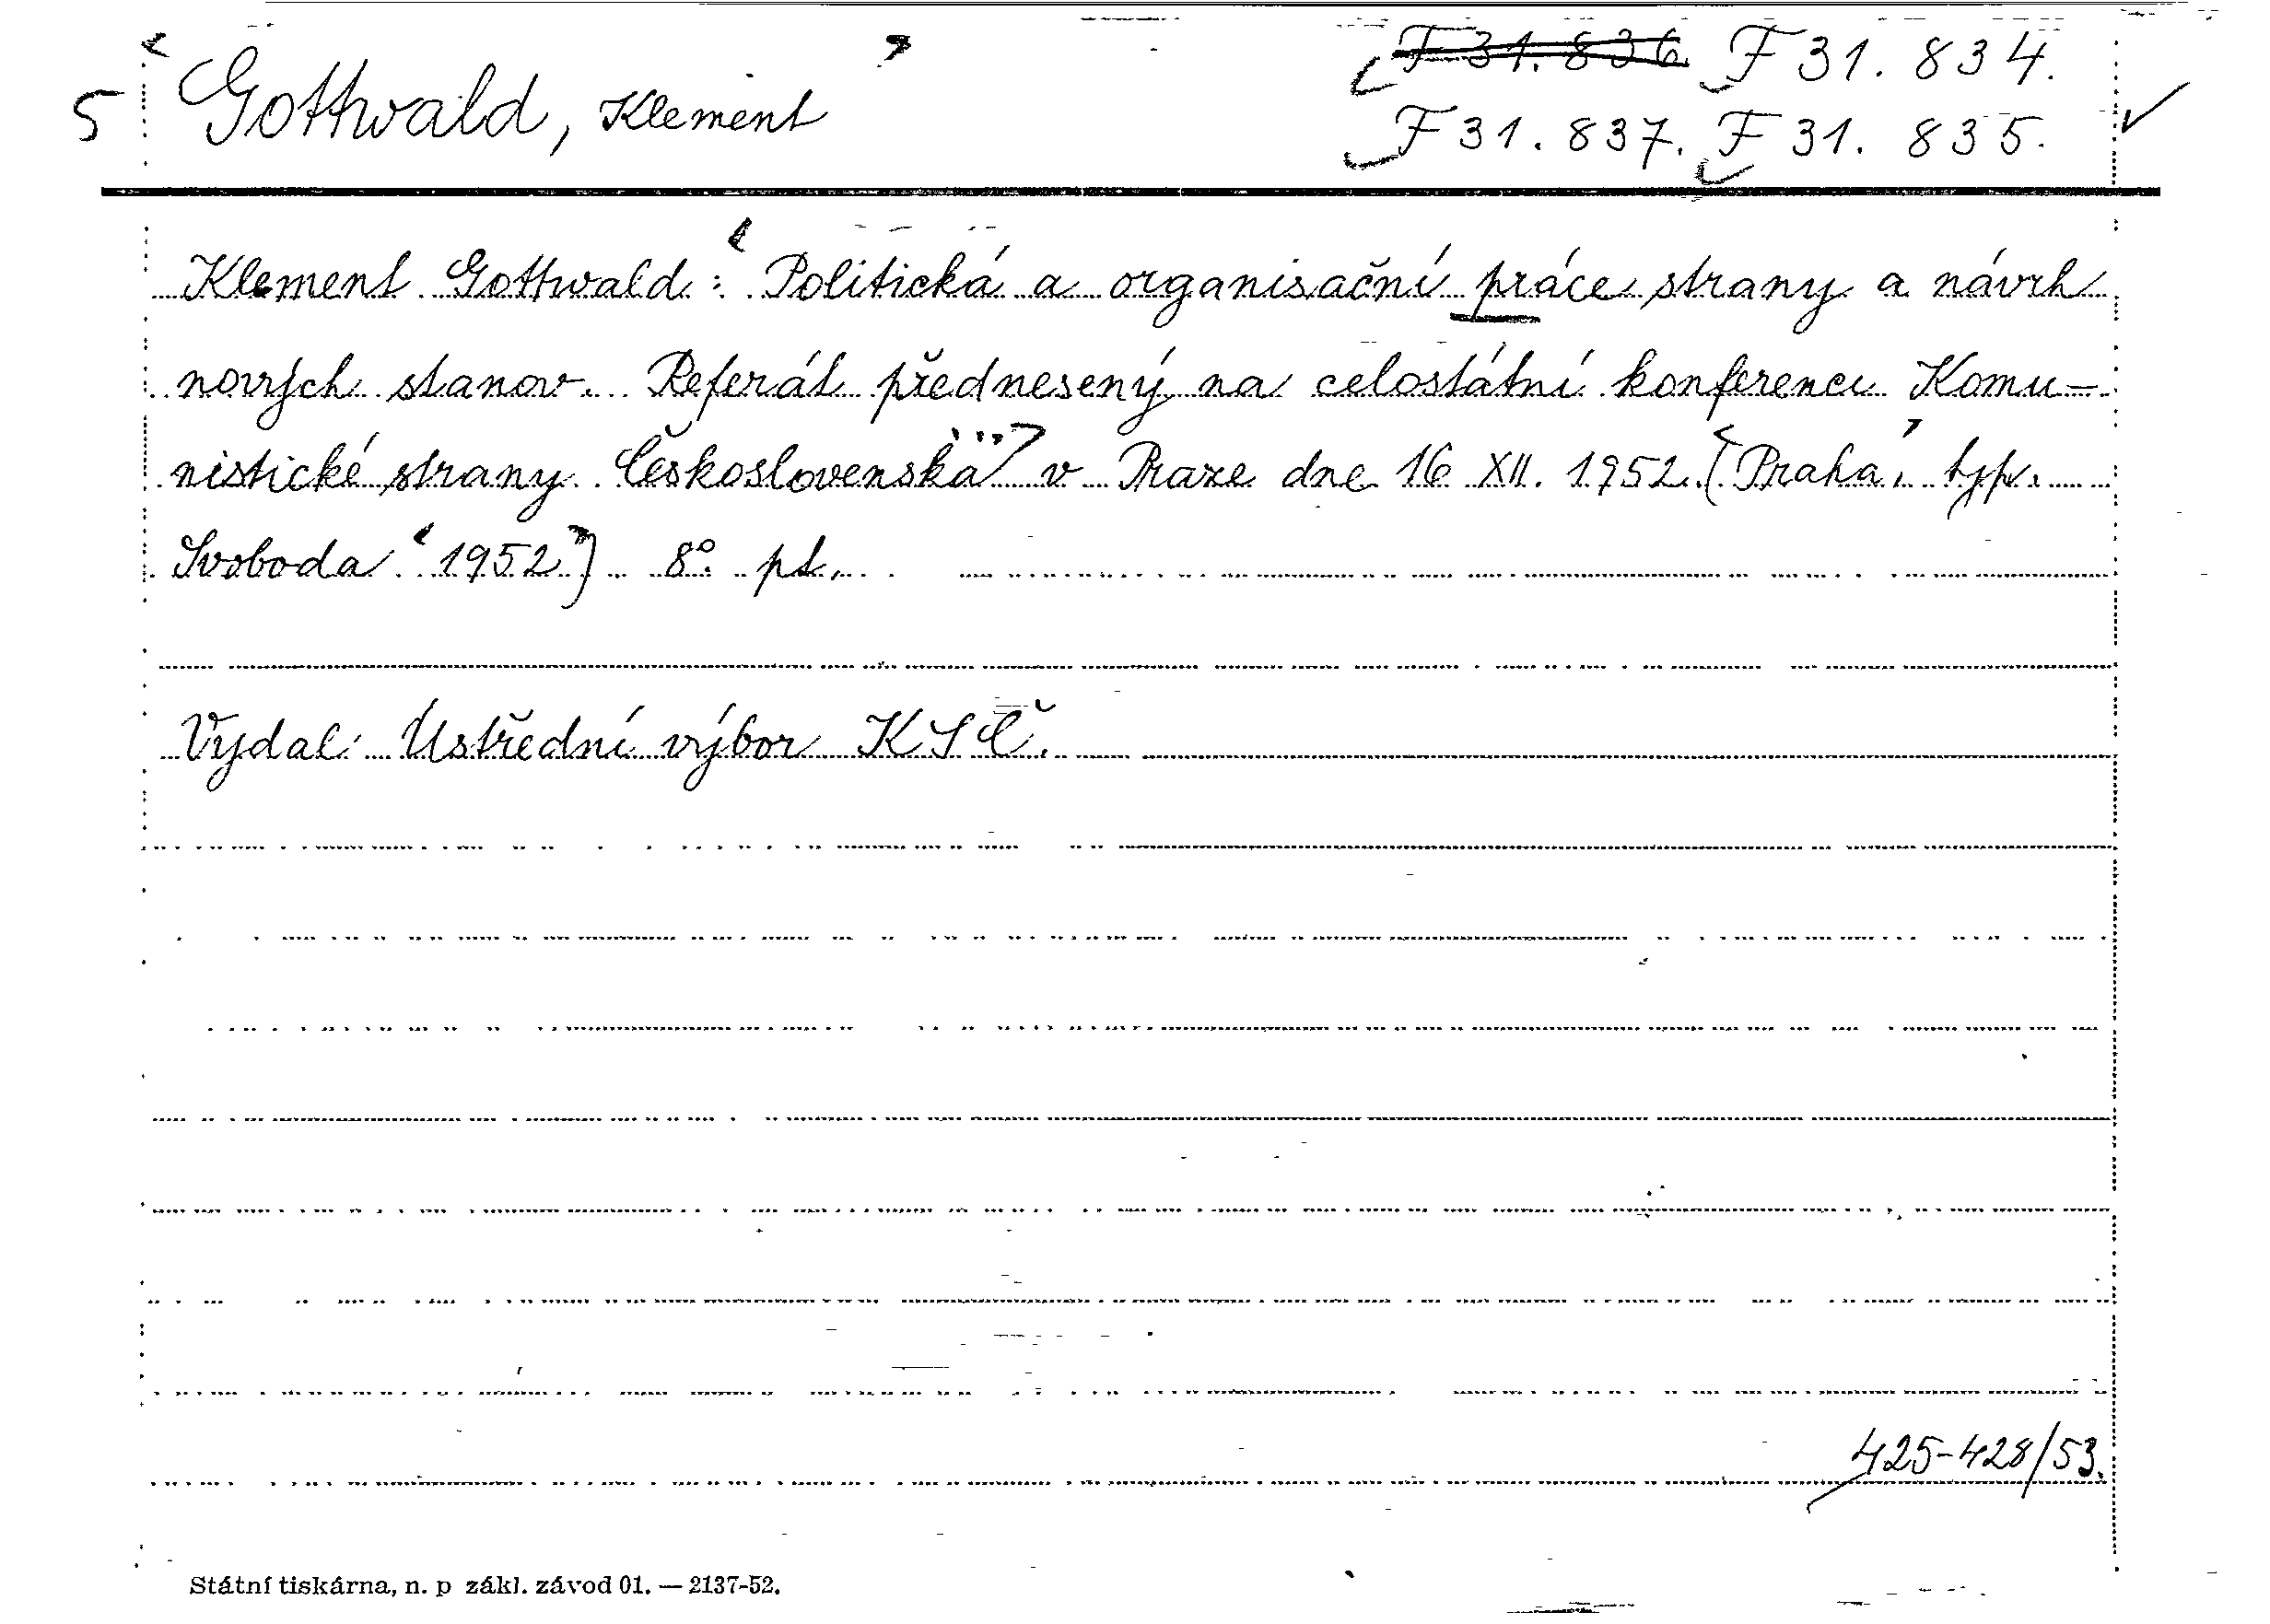 F 31.836. F 31.834.
5 Gottwald, Klement
F 31.837. F 31.835.
Klement Gottwald: Politická a organisační práce strany a návrh
nových stanov. Referát přednesený na celostátní konferenci Komu-
nistické strany Československa v Praze dne 16 XII. 1952. [Praha, typ.
Svoboda 1952] 8° pt.
Vydal: Ústřední výbor KSČ.
425-428/53.
Státní tiskárna, n. p zákl. závod 01. — 2137-52.